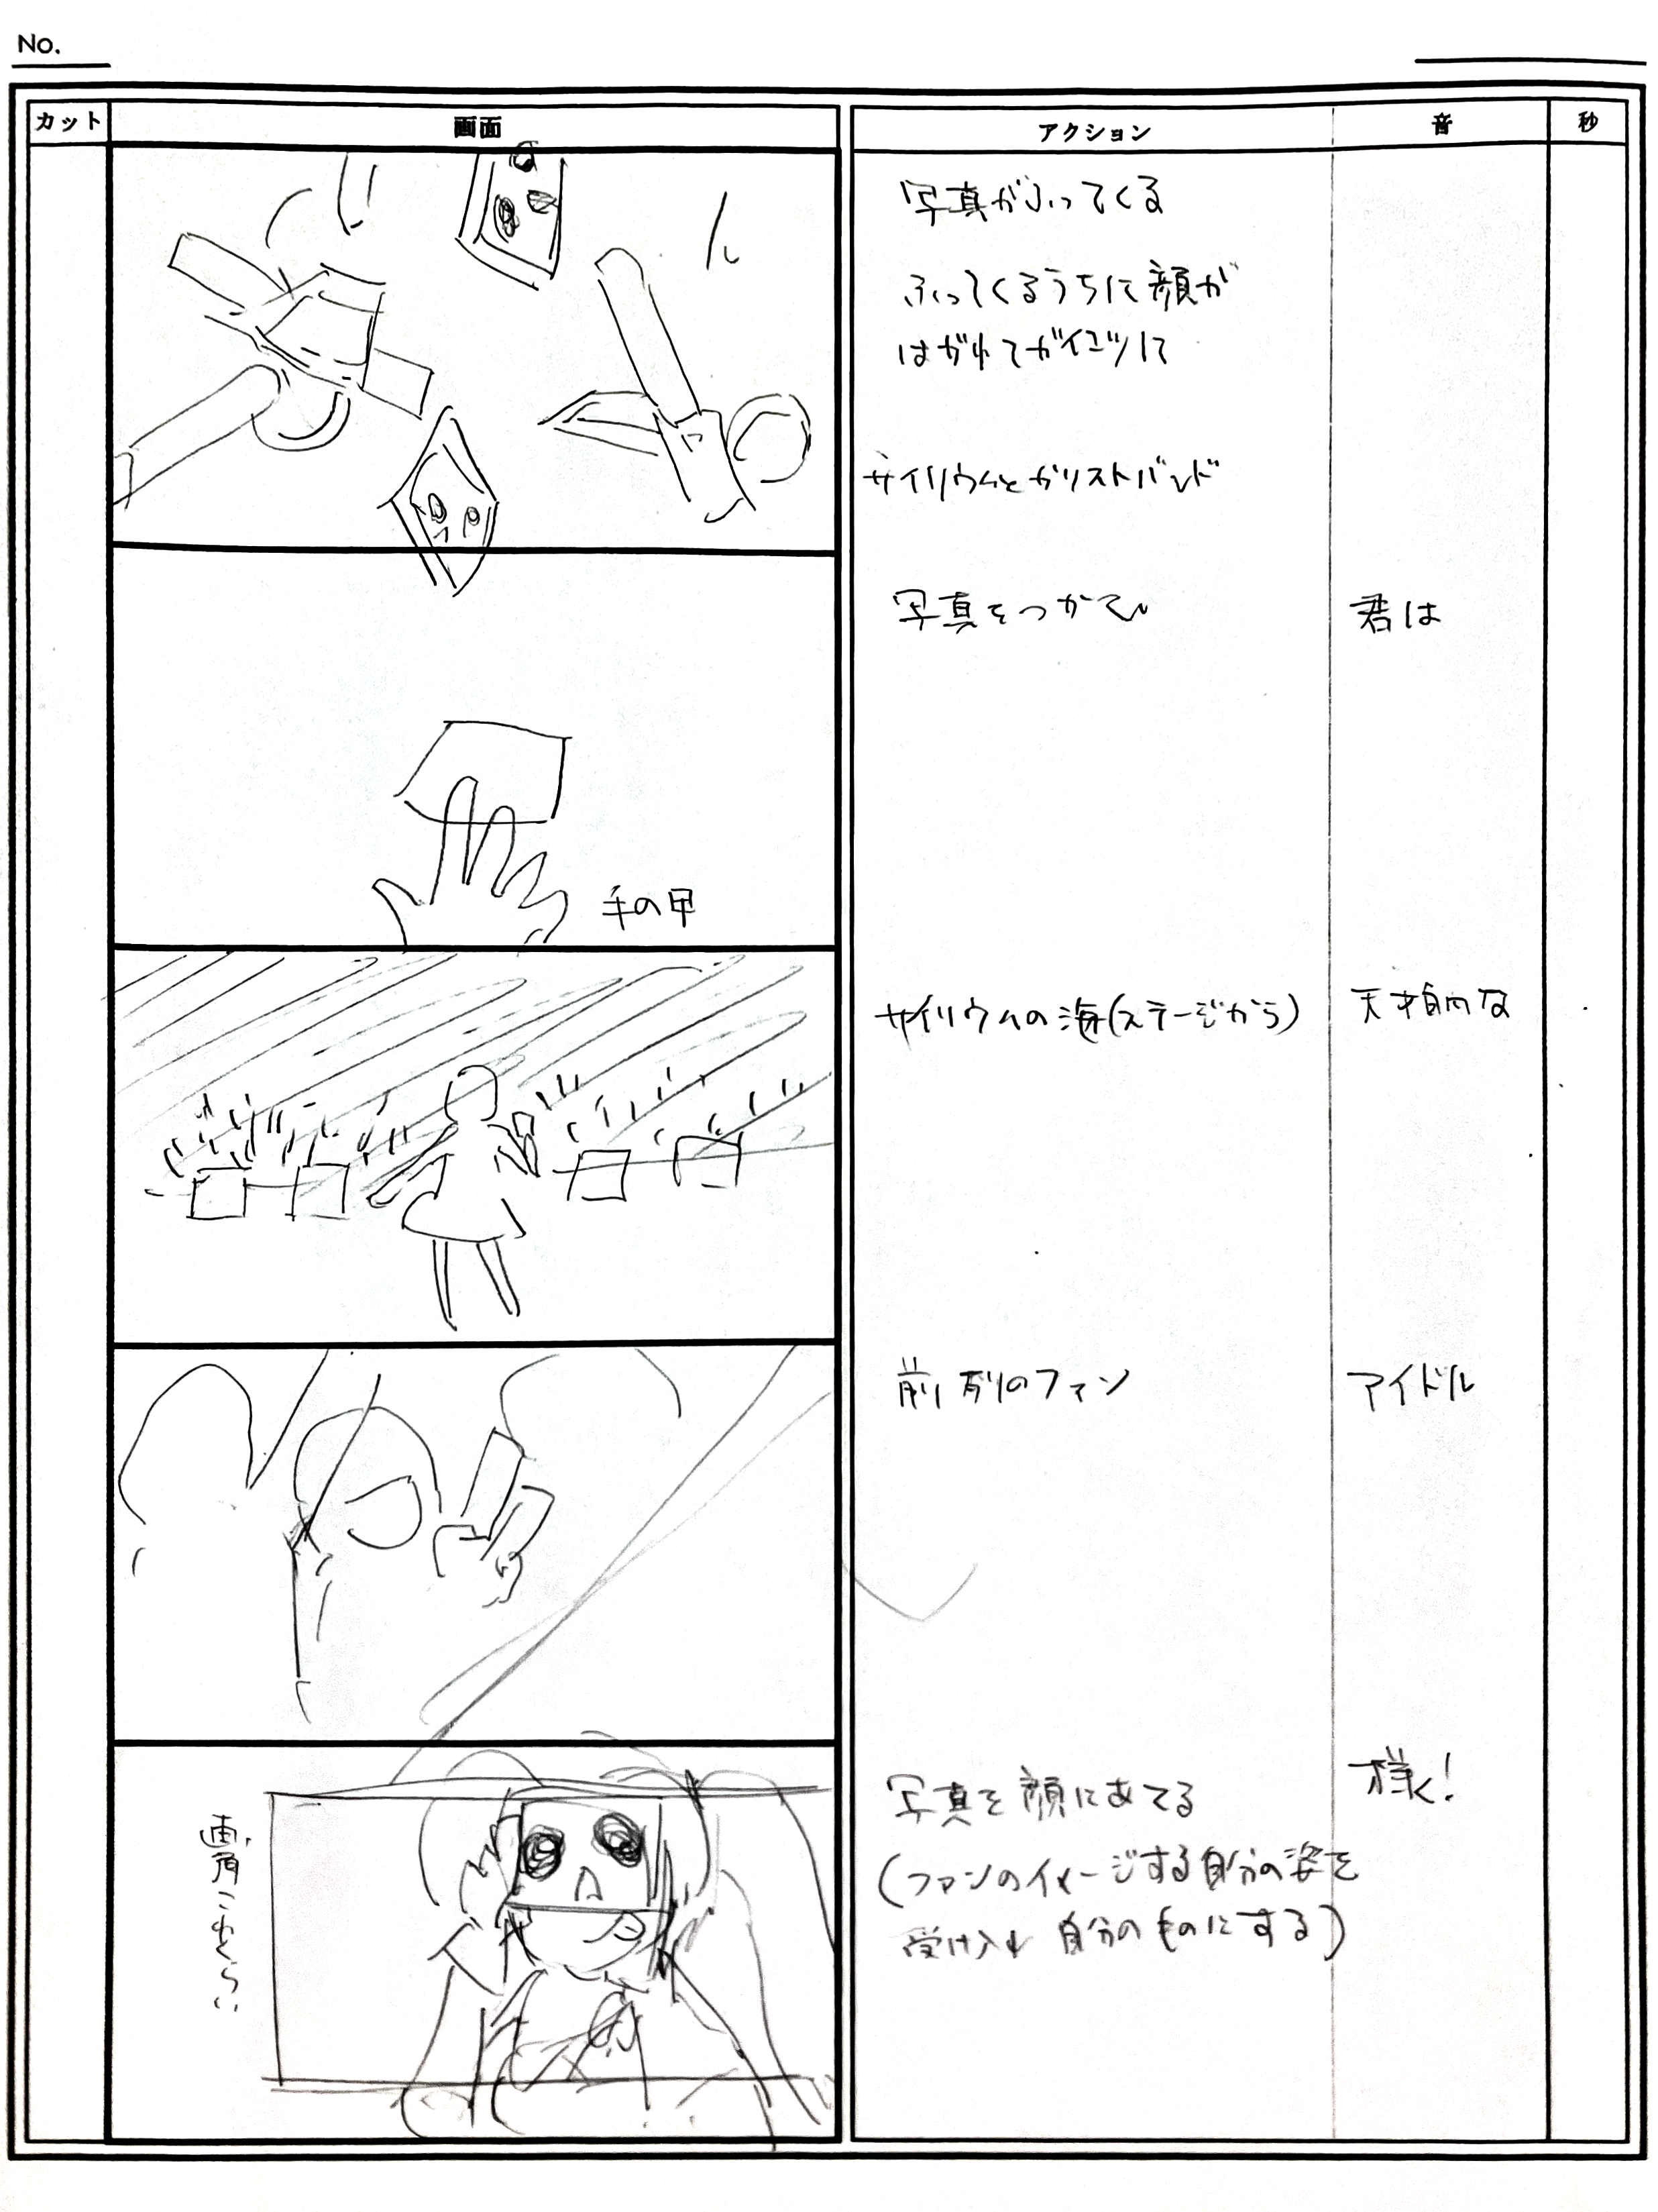 No.
カット 画面 アクション 音 秒
写真がふってくる
ふってくるうちに顔が
はがれてガイコツに
サイリウムとかリストバンド
写真をつかむ
君は
手の甲
サイリウムの海(ステージから)
天才的な
前列のファン
アイドル
写真を顔にあてる
様!
(ファンのイメージする自分の姿を
受け入れ 自分のものにする)
画角これくらい